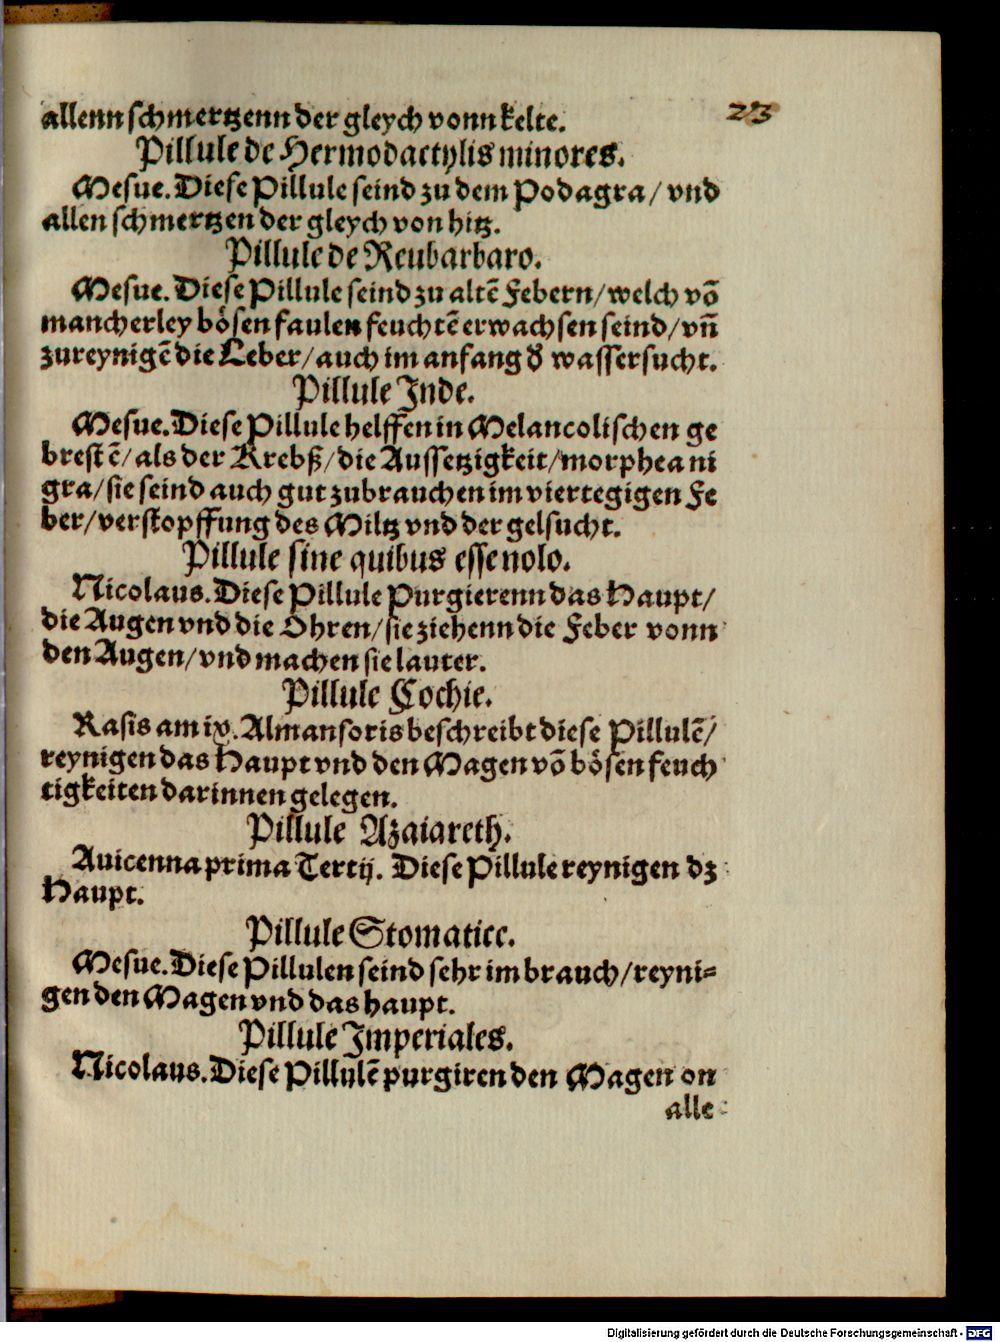 23
allenn schmertzenn der gleych vonn kelte.
Pillule de Hermodactylis minores.
Mesue. Diese Pillule seind zu dem Podagra/ vnd
allen schmertzen der gleych von hitz.
Pillule de Reubarbaro.
Mesue. Diese Pillule seind zu altē Febern/ welch vō
mancherley bösen faulen feuchtē erwachsen seind/ vñ
zureynigē die Leber/ auch im anfang d̕ wassersucht.
Pillule Inde.
Mesue. Diese Pillule helffen in Melancolischen ge
brestē/ als der Krebß/ die Aussetzigkeit/ morphea ni
gra/ sie seind auch gut zubrauchen im viertegigen Fe
ber/ verstopffung des Miltz vnd der gelsucht.
Pillule sine quibus esse nolo.
Nicolaus. Diese Pillule Purgierenn das Haupt/
die Augen vnd die Ohren/ sie ziehenn die Feber vonn
den Augen/ vnd machen sie lauter.
Pillule Cochie.
Rasis am ix. Almansoris beschreibt diese Pillulē/
reynigen das Haupt vnd den Magen vō bösen feuch
tigkeiten darinnen gelegen.
Pillule Azaiareth.
Auicenna prima Tertij. Diese Pillule reynigen dz
Haupt.
Pillule Stomatice.
Mesue. Diese Pillulen seind sehr im brauch/ reyni⸗
gen den Magen vnd das haupt.
Pillule Imperiales.
Nicolaus. Diese Pillulē purgiren den Magen on
alle
Digitalisierung gefördert durch die Deutsche Forschungsgemeinschaft - DFG